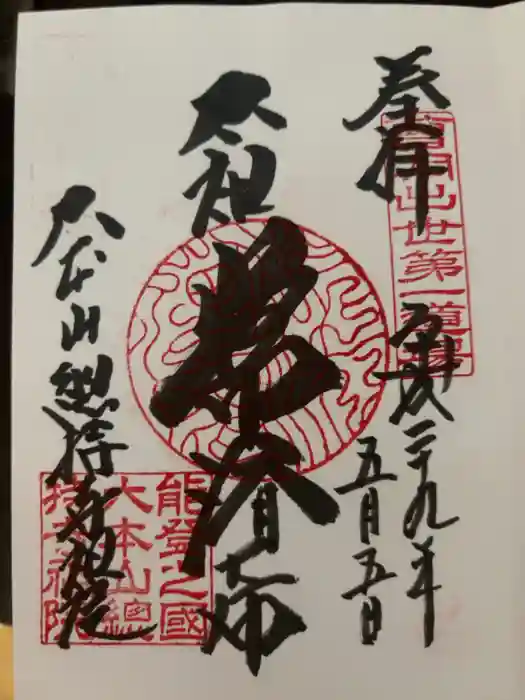 奉拝
曹洞出世第一道場
平成二十九年
五月五日
太祖常済大師
能登之國
大本山總
持寺祖院
大本山總持寺祖院